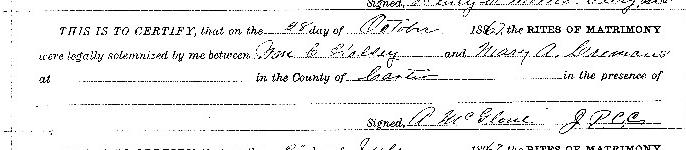 Signed,
THIS IS TO CERTIFY, that on the 28 day of October 1867, the RITES OF MATRIMONY
were legally solemnized by me between Wm C and Mary A.
at in the County of Carter in the presence of
Signed, A McGlone J P C C
the RITES OF MATRIMONY